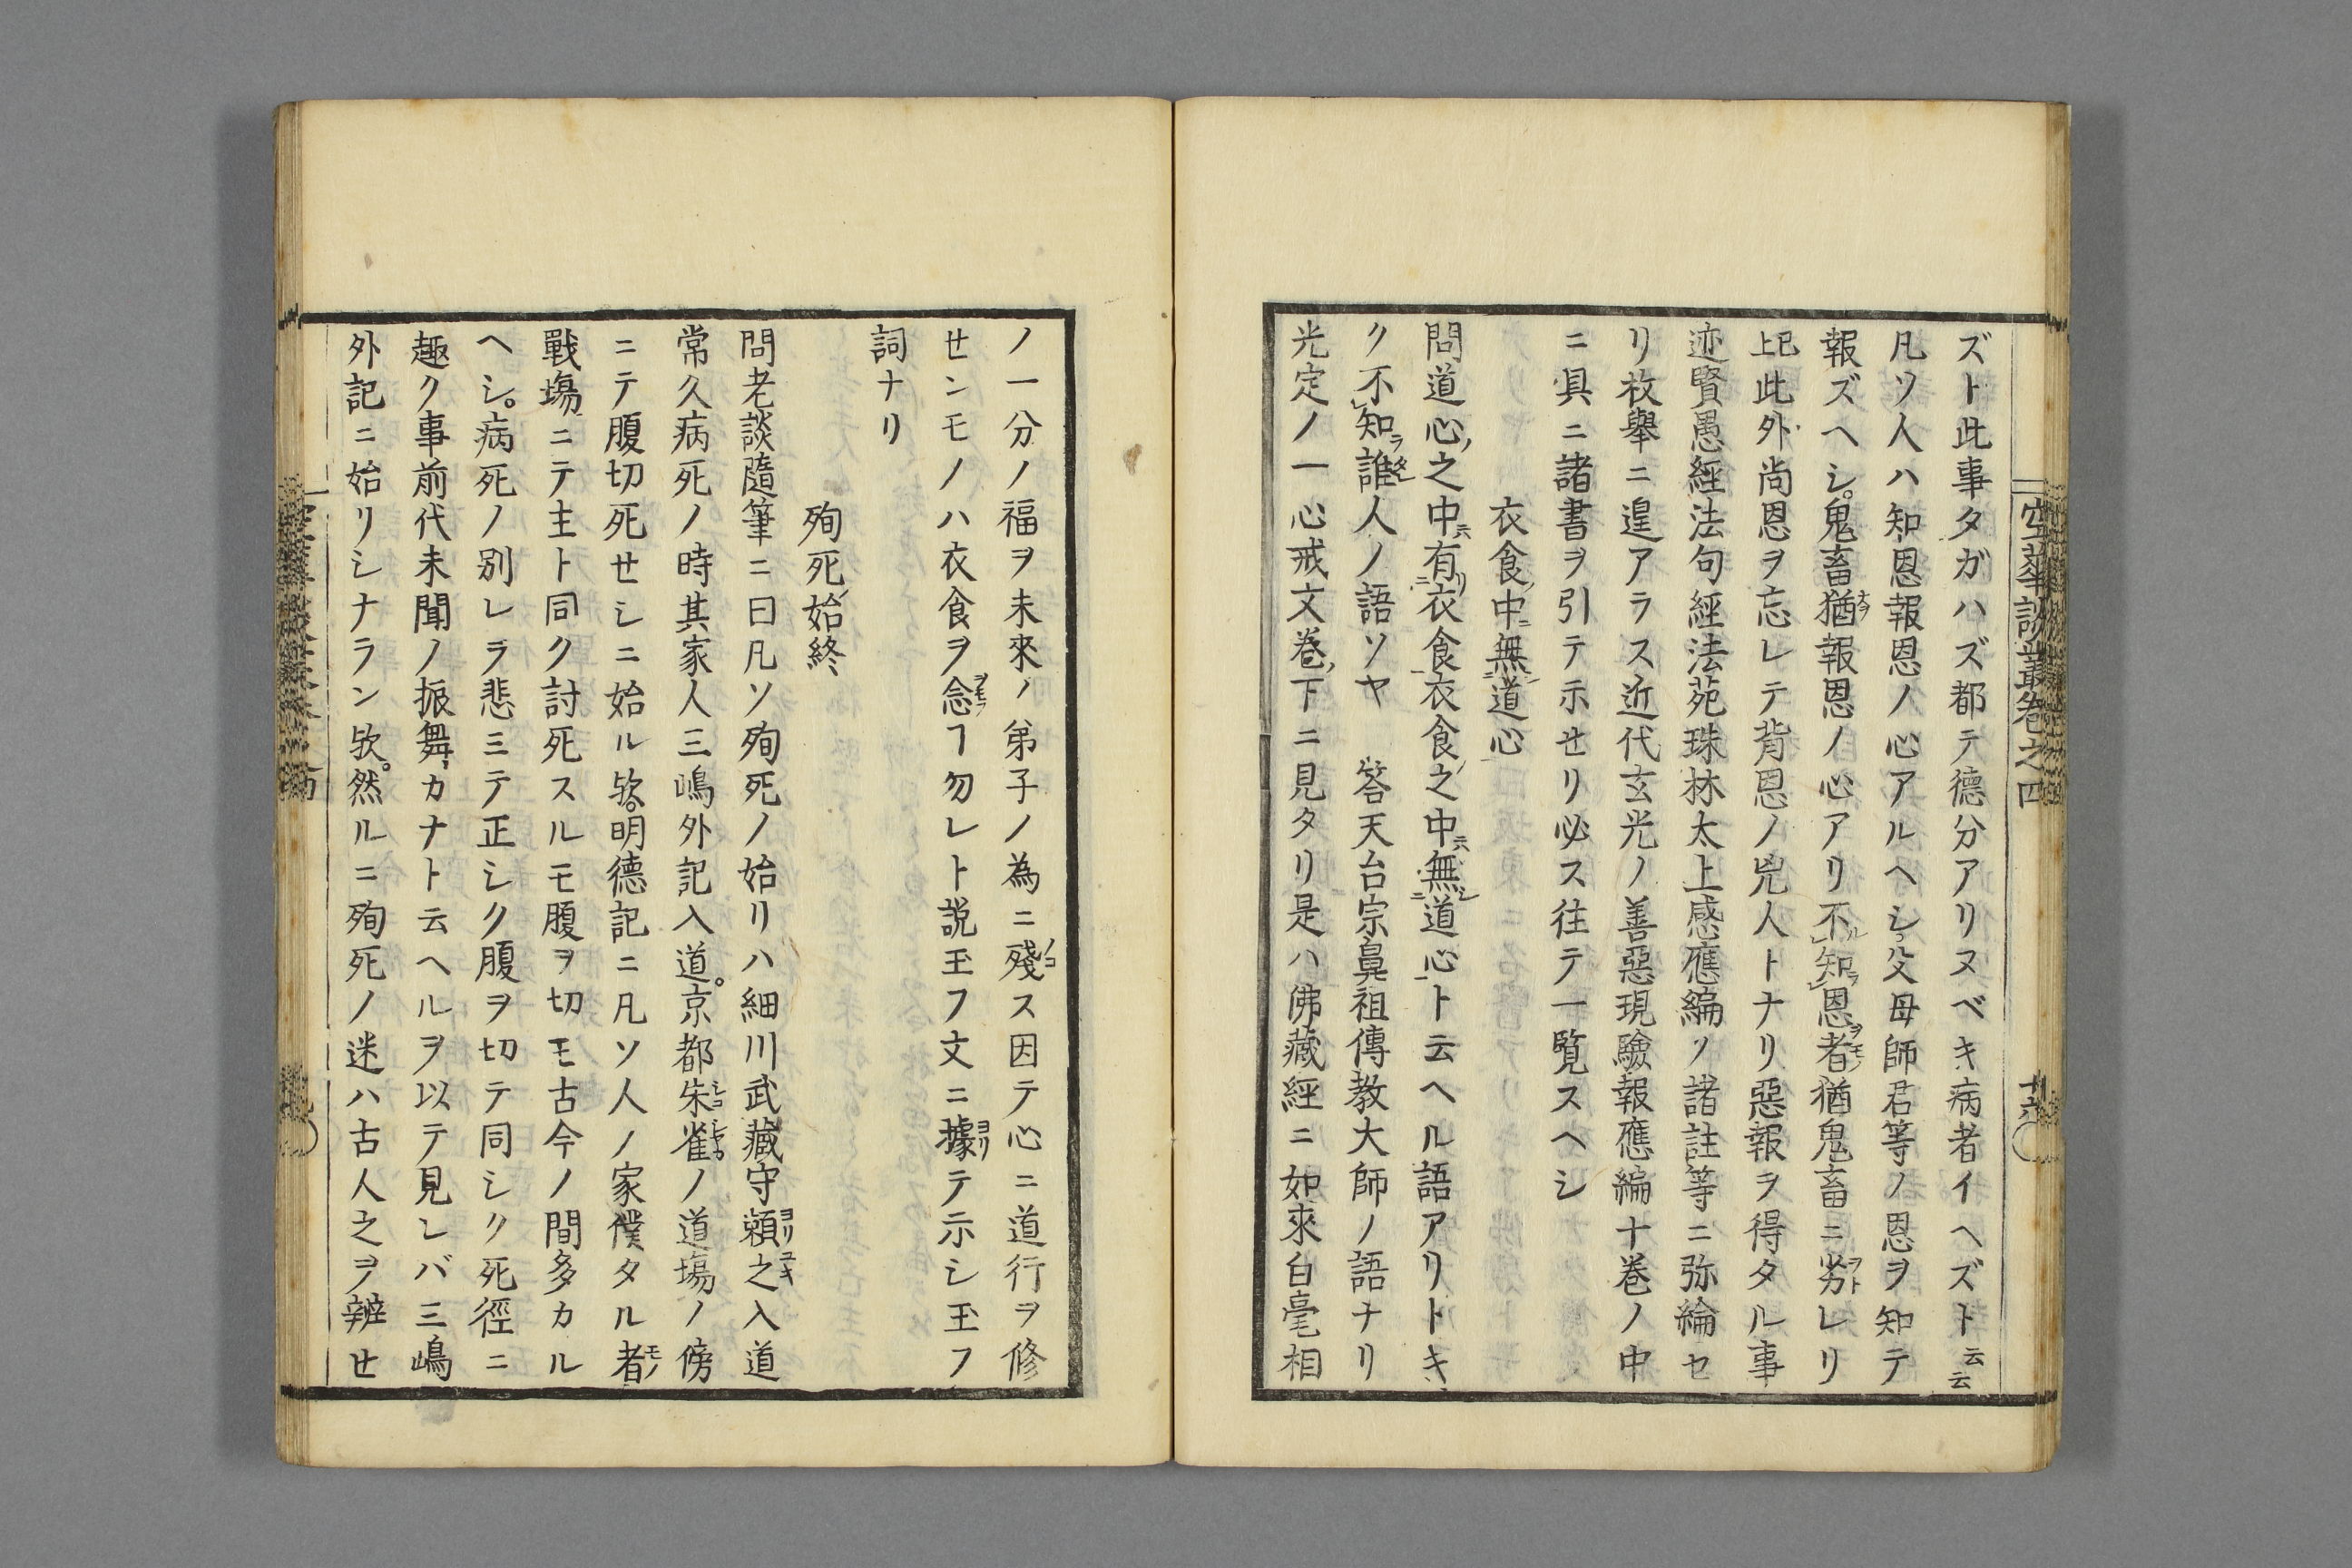 空華談叢卷之四
ズト此事タガハズ都テ德分アリヌベキ病者イヘズト云云
凡ソ人ハ知恩報恩ノ心アルヘシ父母師君等ノ恩ヲ知テ
報ズヘシ。鬼畜猶報恩ノ心アリ不知恩者猶鬼畜ニ劣レリ
已上此外尚恩ヲ忘レテ背恩ノ兇人トナリ惡報ヲ得タル事
迹賢愚經法句經法苑珠林太上感應編ノ諸註等ニ弥綸セ
リ枚舉ニ遑アラス近代玄光ノ善惡現驗報應編十巻ノ中
ニ具ニ諸書ヲ引テ示せリ必ス往テ一覽スヘシ
衣食中無道心
問道心之中有衣食衣食之中無道心ト云ヘル語アリトキ
ク不知誰人ノ語ソヤ 答天台宗鼻祖傳教大師ノ語ナリ
光定ノ一心戒文巻下ニ見タリ是ハ佛藏經ニ如來白毫相
ノ一分ノ福ヲ未來ノ弟子ノ為ニ殘ス因テ心ニ道行ヲ修
せンモノハ衣食ヲ念ヿ勿レト説玉フ文ニ據テ示シ玉フ
詞ナリ
殉死始終
問老談隨筆ニ曰凡ソ殉死ノ始リハ細川武藏守頼之入道
常久病死ノ時其家人三嶋外記入道。京都朱雀ノ道場ノ傍
ニテ腹切死せシニ始ル欤。明德記ニ凡ソ人ノ家僕タル者
戰塲ニテ主ト同ク討死スルモ腹ヲ切モ古今ノ間多カル
ヘシ。病死ノ別レヲ悲ミテ正シク腹ヲ切テ同シク死徑ニ
趣ク事前代未聞ノ振舞カナト云ヘルヲ以テ見レバ三嶋
外記ニ始リシナラン欤。然ルニ殉死ノ迷ハ古人之ヲ辨せ